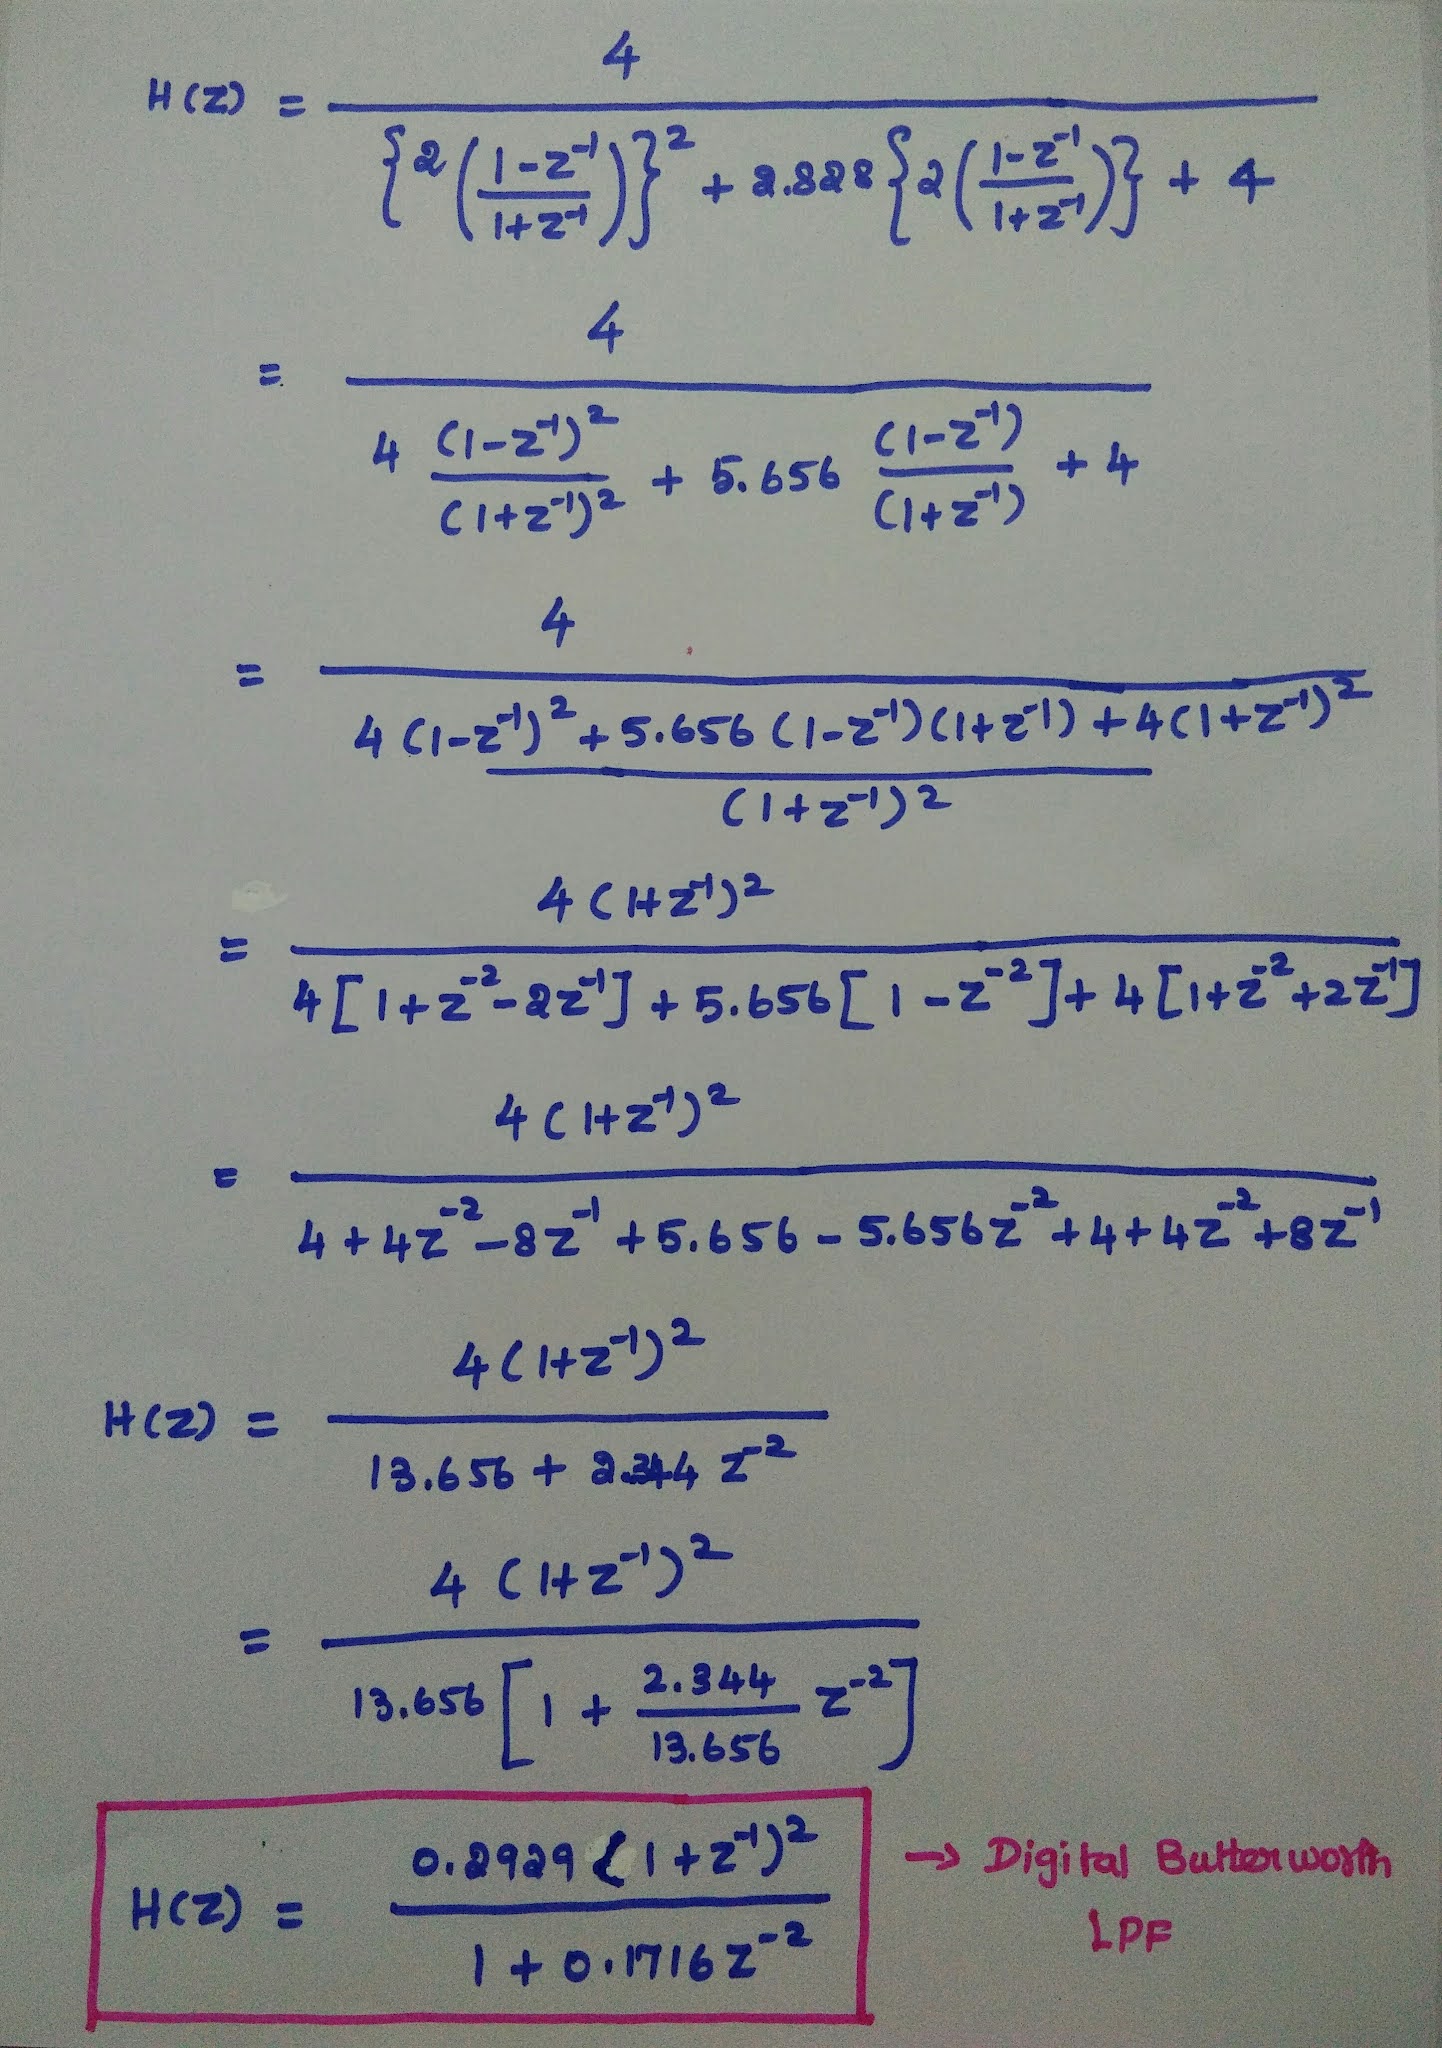 H(Z) = 4 / {2((1-z⁻¹)/(1+z⁻¹))}² + 2.828 {2((1-z⁻¹)/(1+z⁻¹))} + 4
= 4 / 4 (1-z⁻¹)²/(1+z⁻¹)² + 5.656 (1-z⁻¹)/(1+z⁻¹) + 4
= 4 / (4(1-z⁻¹)² + 5.656(1-z⁻¹)(1+z⁻¹) + 4(1+z⁻¹)²) / (1+z⁻¹)²
= 4(1+z⁻¹)² / 4[1+z⁻²-2z⁻¹] + 5.656[1-z⁻²] + 4[1+z⁻²+2z⁻¹]
= 4(1+z⁻¹)² / 4+4z⁻²-8z⁻¹+5.656-5.656z⁻²+4+4z⁻²+8z⁻¹
H(Z) = 4(1+z⁻¹)² / 13.656 + 2.344 z⁻²
= 4(1+z⁻¹)² / 13.656 [1 + 2.344/13.656 z⁻²]
H(Z) = 0.2929(1+z⁻¹)² / 1 + 0.1716z⁻² → Digital Butterworth
LPF